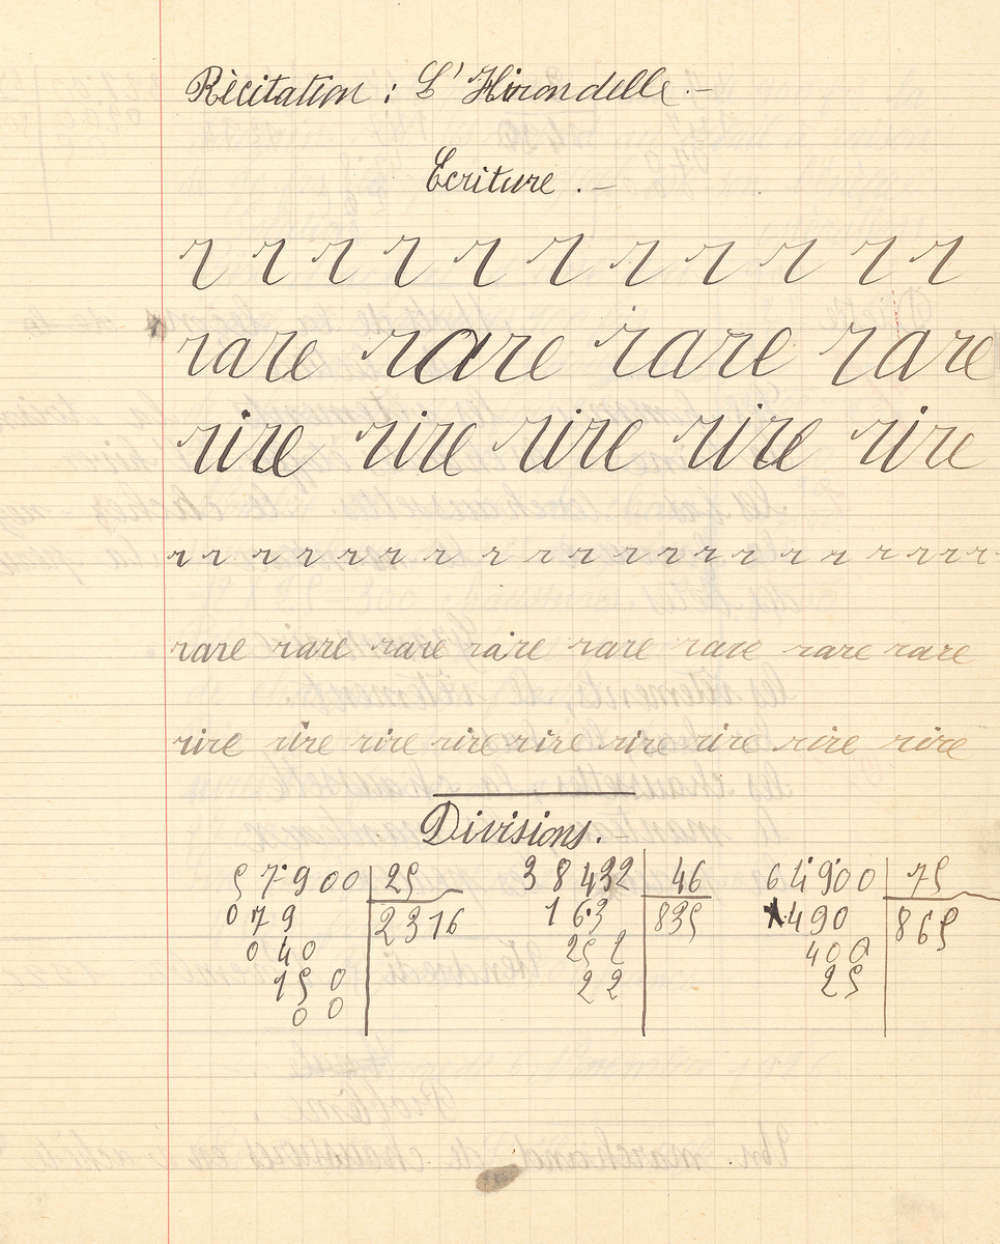 Récitation : L'Hirondelle .-
Ecriture .-
r r r r r r r r r r r
rare rare rare rare
rire rire rire rire rire
r r r r r r r r r r r r r r r r r r r r
rare rare rare rare rare rare rare rare
rire rire rire rire rire rire rire rire rire
Divisions.-
57900 25 38432 46 64900 75
079 2316 163 835 490 865
040 252 400
150 22 25
00